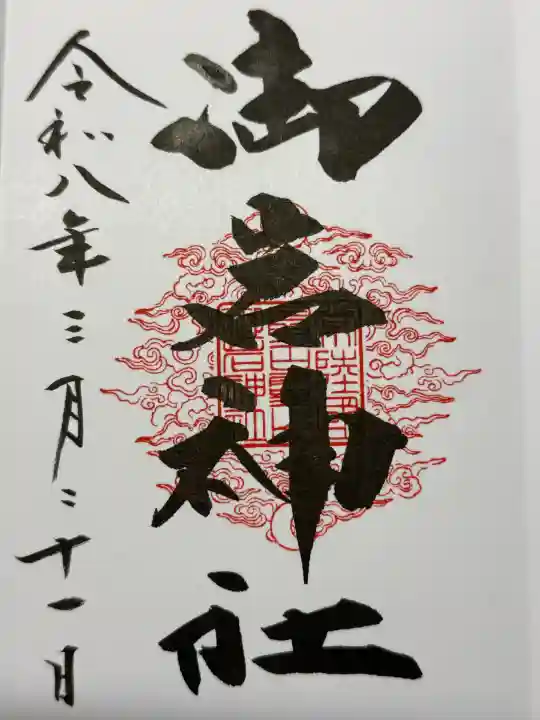 御岩神社
令和八年三月二十一日